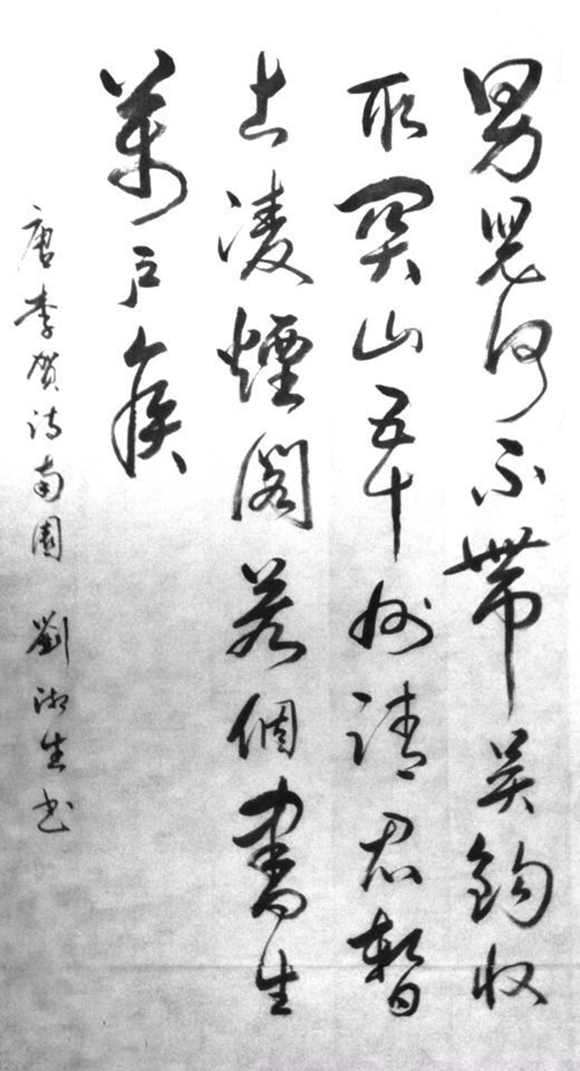 男兒何不帶吳鉤收
取關山五十州請君暫
上凌煙閣若個書生
萬戶侯
唐李賀詩南園 劉湘生书